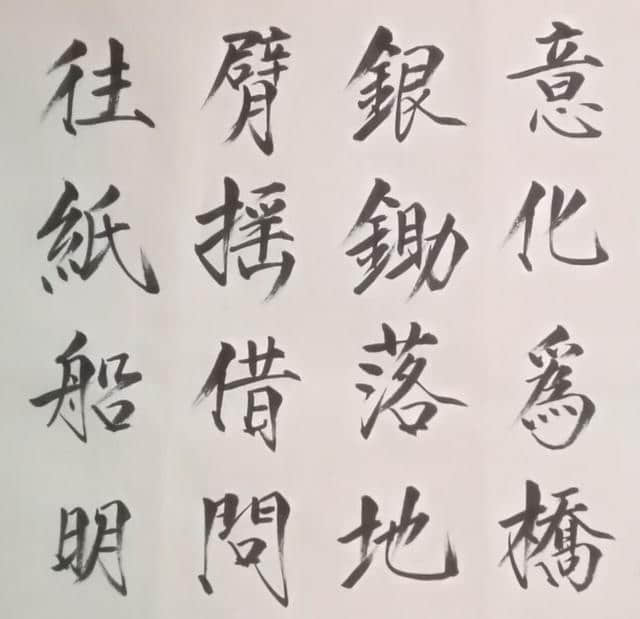 意化爲橋
銀鋤落地
臂摇借問
往紙船明